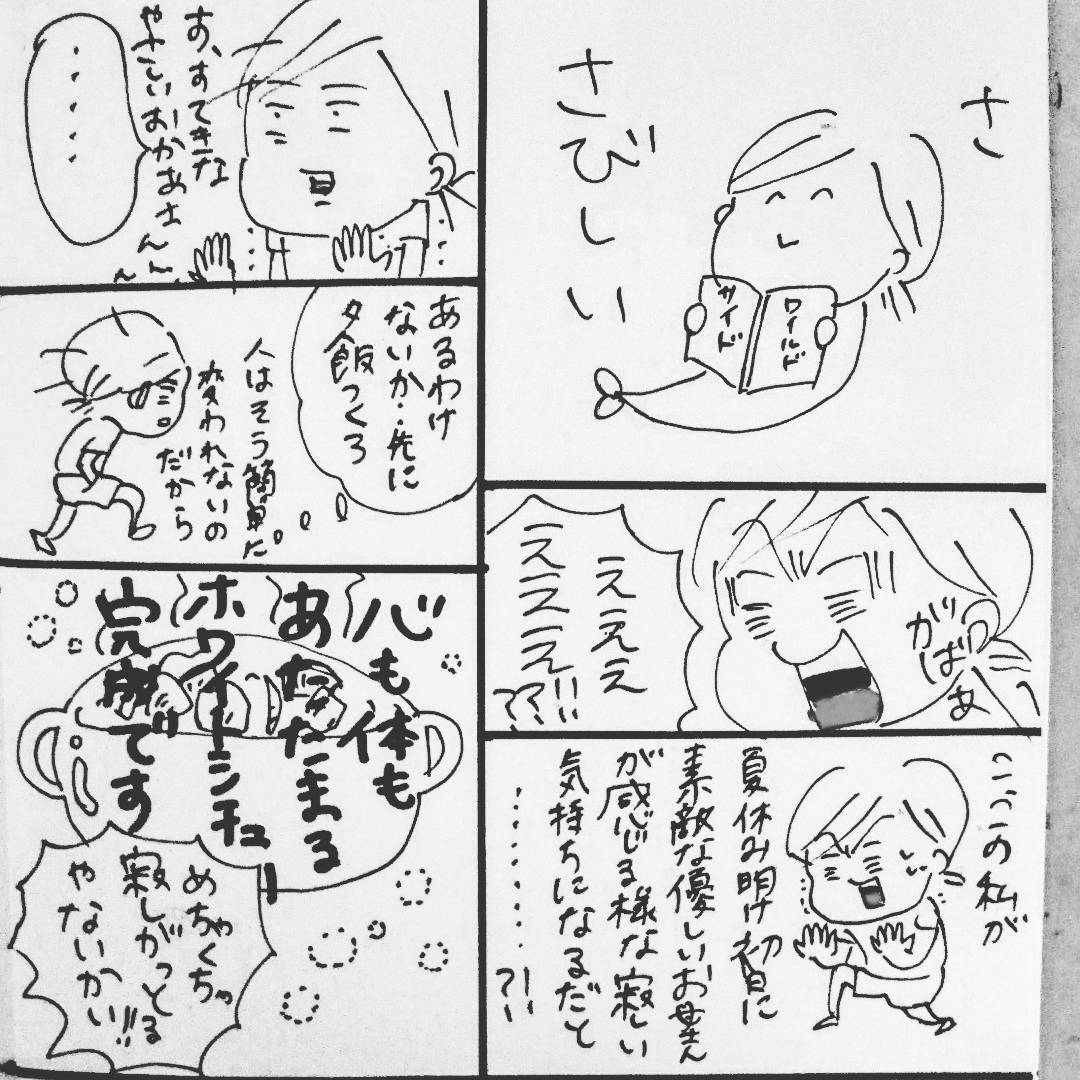 さ
さびしい
サイド
ワイルド
がばぁ
えええ
ええええ!!??
こここの私が
夏休み明け初日に
素敵な優しいお母さん
が感じる様な寂しい
気持ちになるだと
・・・・・・・?!
す、すてきな
やさしいおかあさん
・・・・・
あるわけ
ないか…先に
夕飯つくろ
人はそう簡単に
変われないの
だから
心も体も
あたたまる
ホワイトシチュー
完成です
めちゃくちゃ
寂しがっとる
やないかい!!